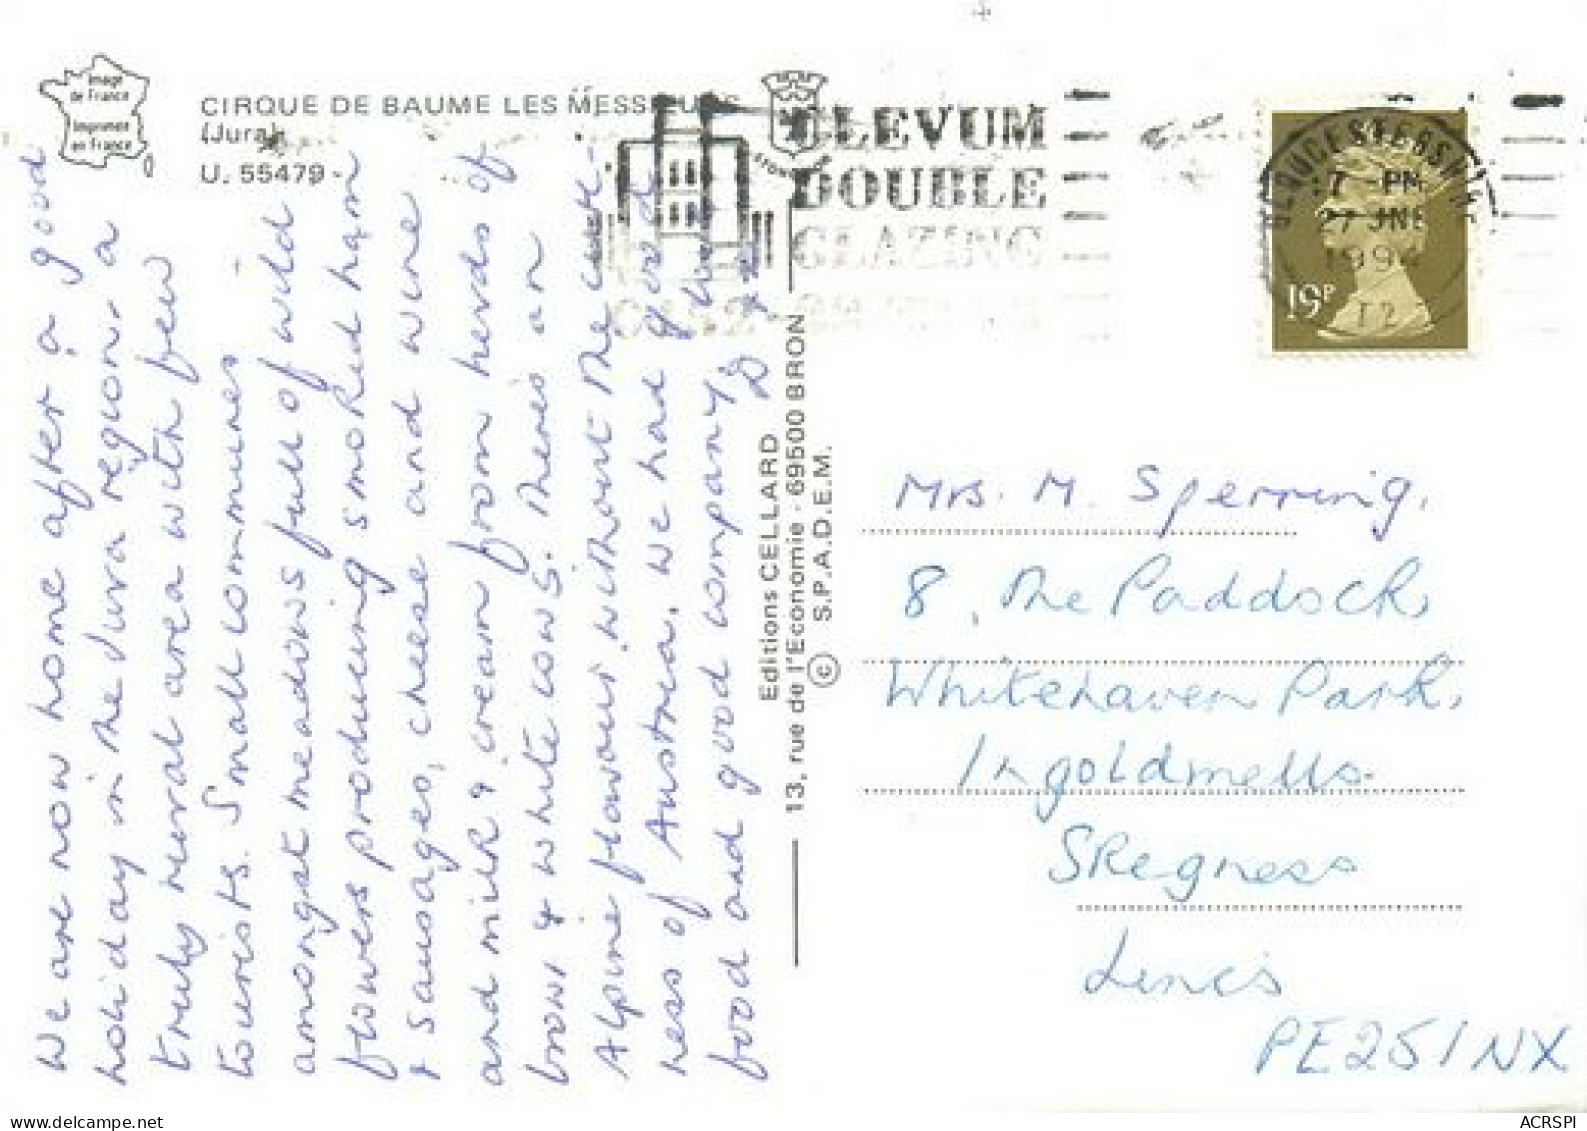 Image
de France
Imprimée
en France
CIRQUE DE BAUME LES MESSIEURS
(Jura)
U. 55479 -
We are now home after a good
holiday in the Jura region, a
truly rural area with few
tourists. Small communes
amongst meadows full of wild
flowers producing smoked ham
& sausages, cheese and wine
and milk & cream from herds of
brown & white cows. There is an
Alpine flavour without the cute-
ness of Austria. We had good
food and good company,
D &
Editions CELLARD
13, rue de l'Economie - 69500 BRON
© S.P.A.D.E.M.
CLEVUM
DOUBLE
GLAZING
GLOUCESTERSHIRE
7 - PM
27 JNE
199
T2
19P
Mrs. M. Sperring,
8, The Paddock,
Whitehaven Park,
Ingoldmells.
Skegness
Lincs
PE25 1NX
delcampe.net
ACRSPI